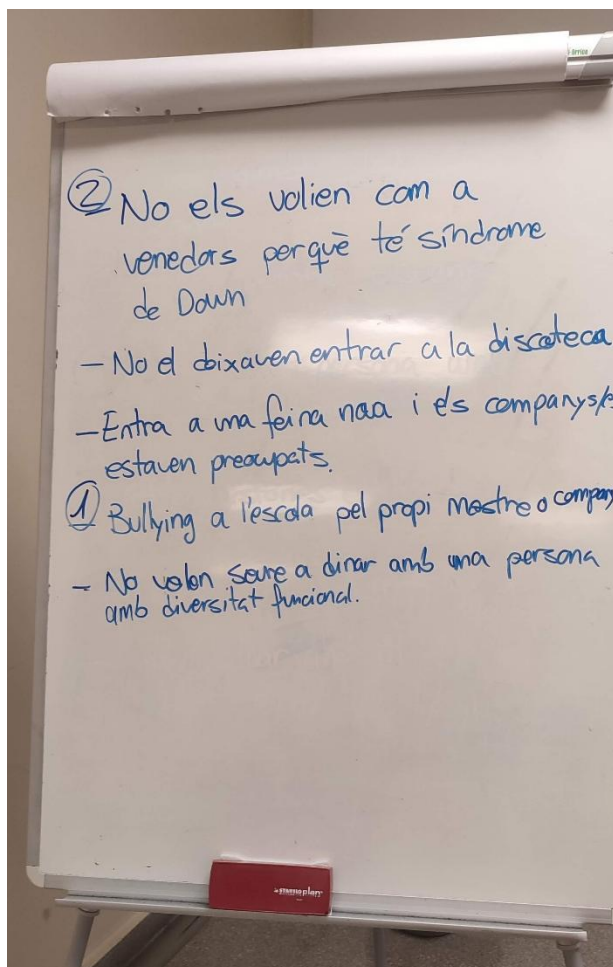 ② No els volien com a
venedors perquè té síndrome
de Down
- No el deixaven entrar a la discoteca
- Entra a una feina nova i els companys/e
estaven preocupats.
① Bullying a l'escola pel propi mestre o company
- No volen seure a dinar amb una persona
amb diversitat funcional.